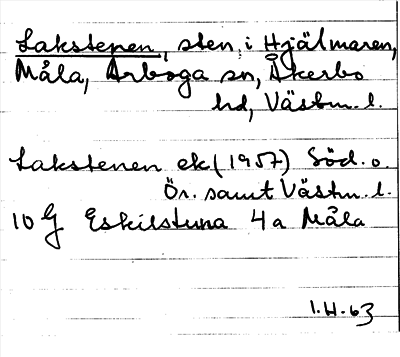 Lakstenen, sten, i Hjälmaren,
Måla, Arboga sn, Åkerbo
hd, Västm. l.
Lakstenen ek (1957) Söd. o.
Ör. samt Västm. l.
10 G Eskilstuna 4 a Måla
I.H. 63